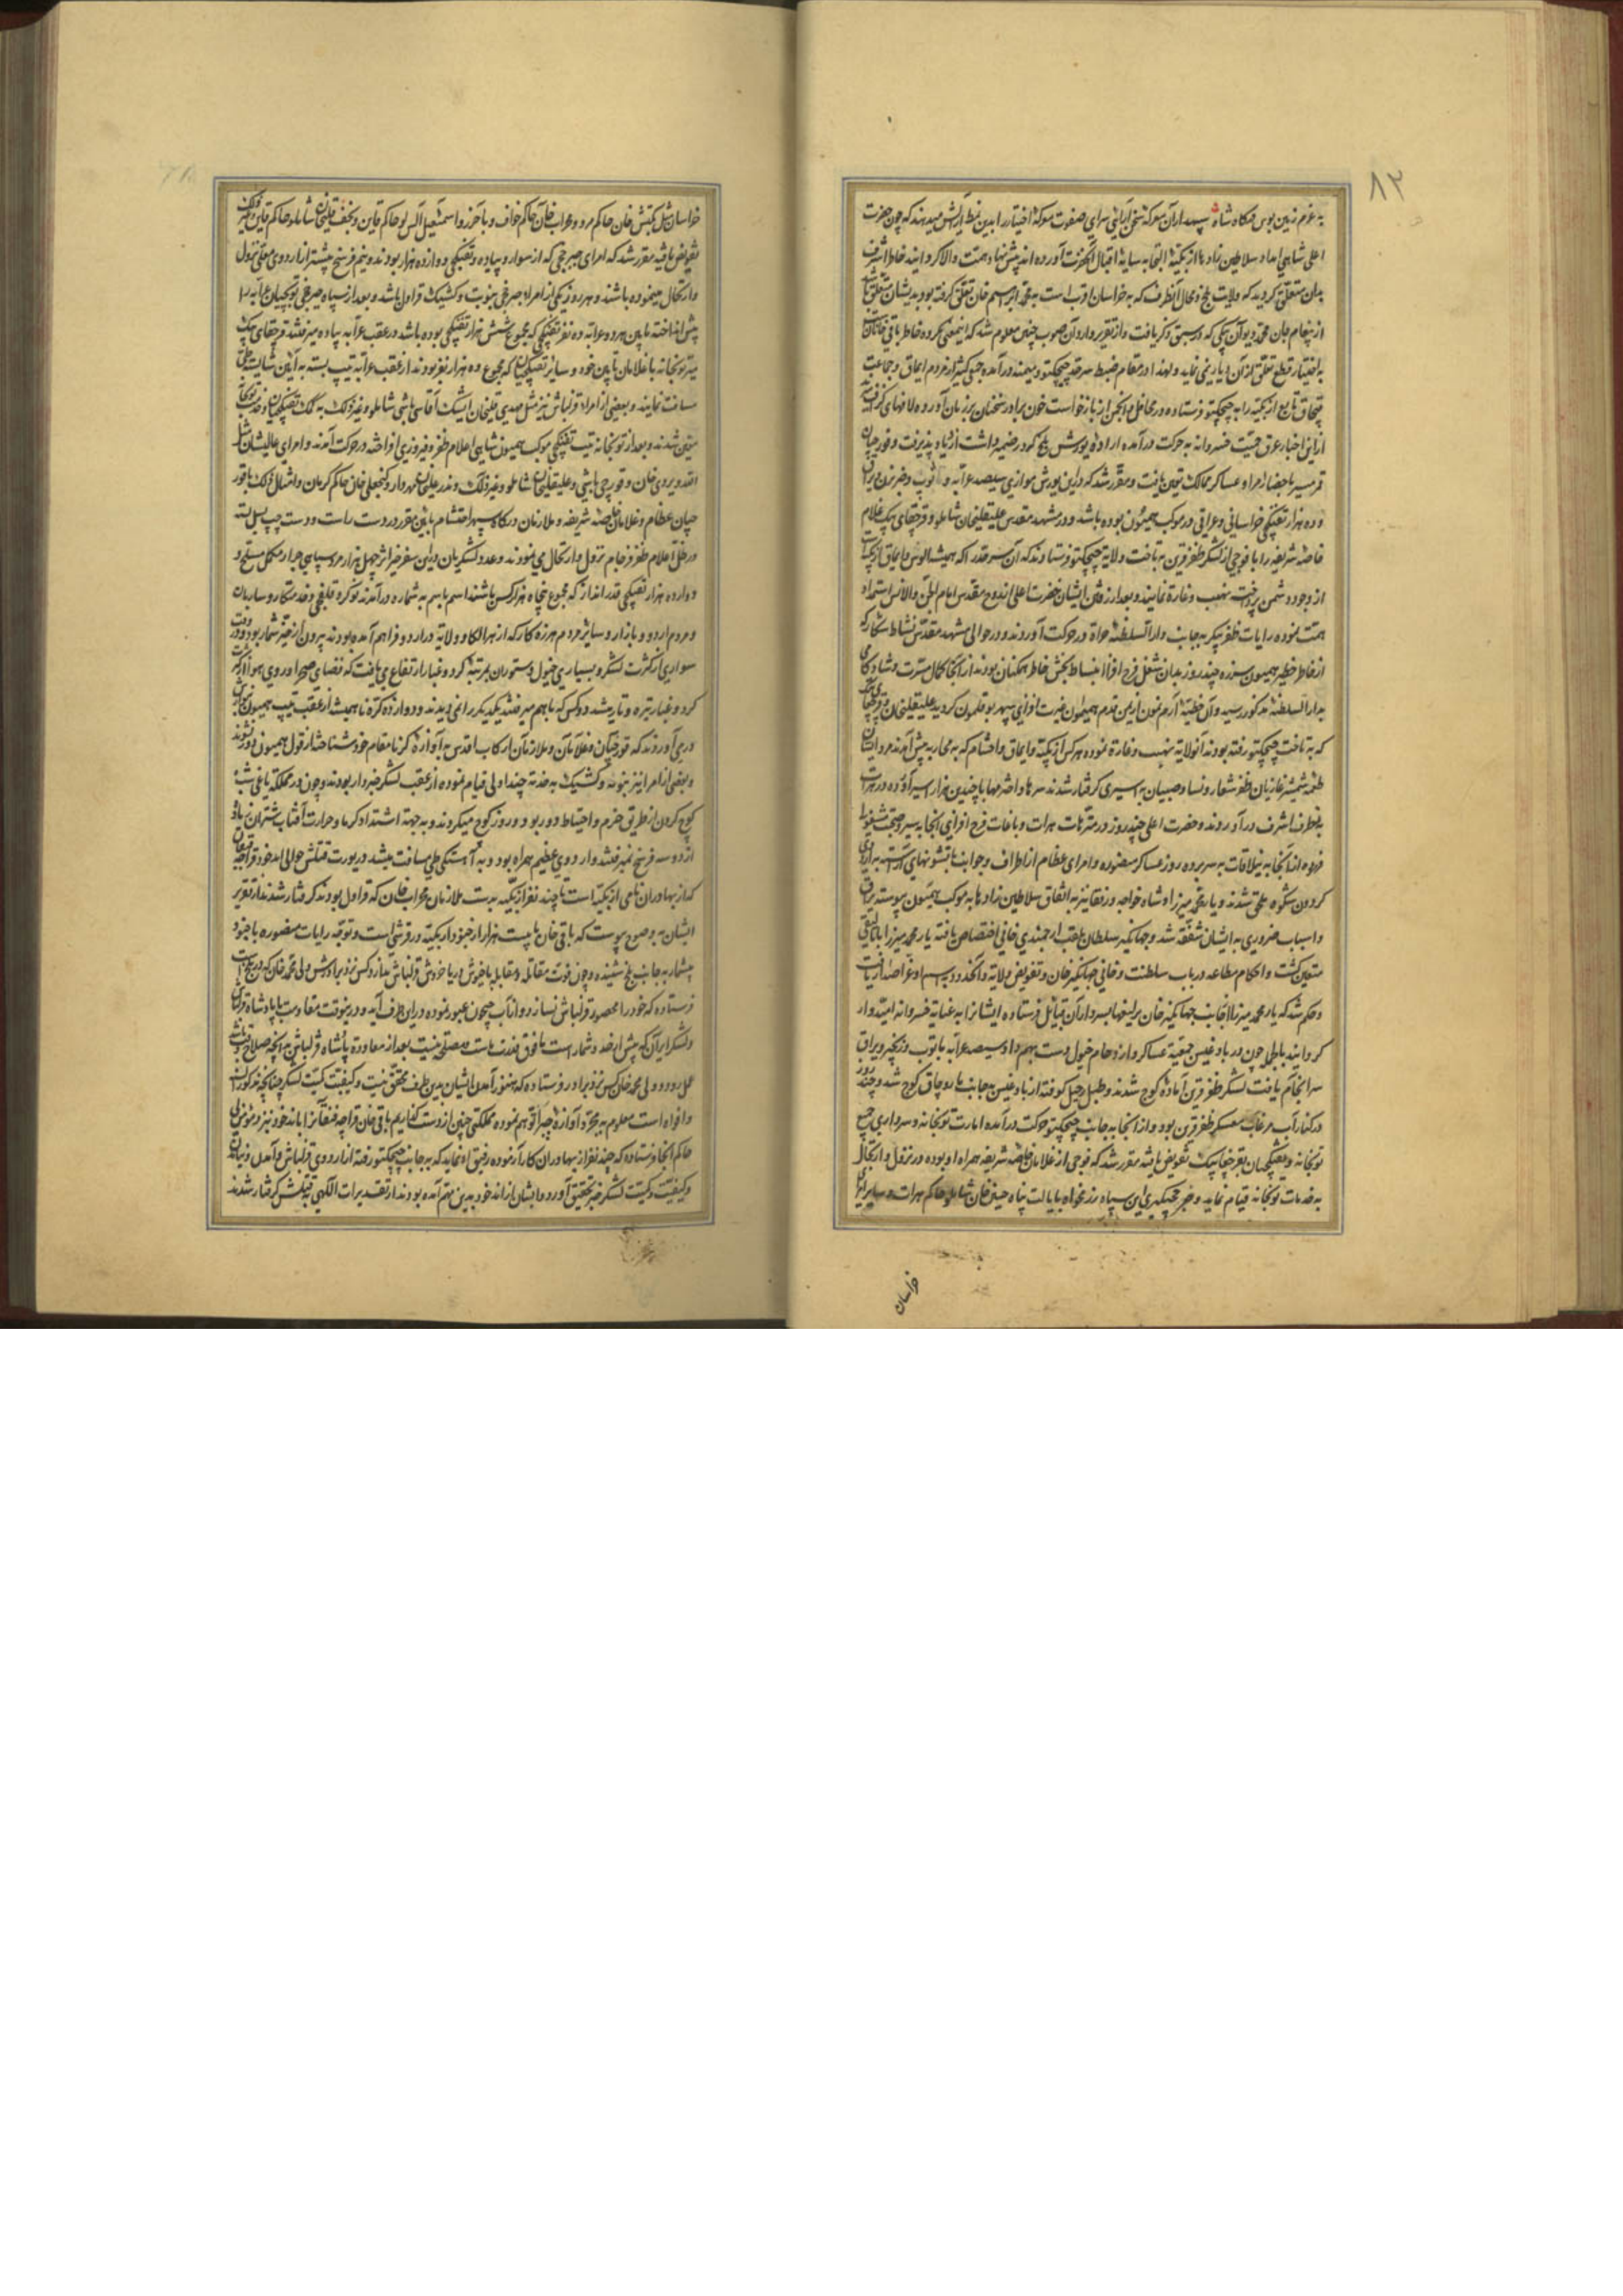 ۸۲
به عزم زمین بوس درگاه شاه سپهدار آن معرکه سخن آرایی سرای صفوت معرکه اختیار را بدین نمط آرایش میدهند که چون حضرت
اعلی شاهی امداد سلاطین زاده‌ها از بکیه التجا به سایه اقبال آنحضرت آورده اند پیش نهاد همت والا گردانیدند خاطر اشرف
بدان متعلق گردید که ولایت بلخ و محال آنطرف که به خراسان اقرب است به محمد ابراهیم خان تعلق گرفته بود بدیشان متعلق باشد
از پیغام جان محمد دیوان بیکی که در سبق ذکر یافت و از تقریر واردان صوب چنین معلوم شد که اینمعنی مکروه خاطر باقی خان
به اختیار قطع تعلق از آن دیار نمی نماید و لهذا در مقام ضبط سرحد چیچکتو و میمنه درآمده جمعی کثیر از مردم ایماق و جماعت
قبچاق تابع ازبکیه را به چیچکتو فرستاده در محافل و انجمن از بازخواست خون برادر سخنان بر زبان آورده لافهای گزاف
از این اخبار عرق حمیت خسروانه به حرکت درآمده اراده یورش بلخ که در ضمیر داشت ازدیاد پذیرفت و قورچیان
قمرمسیر باحضار امرا و عساکر ممالک تعیین یافت و مقرر شد که در این یورش موازی سیصد عرابه و توپ و ضربزن و یراق
و ده هزار تفنگچی خراسانی و عراقی در موکب همیون بوده باشد و در مشهد مقدس علیقلیخان شاملو و قرچقای بیک غلام
خاصه شریفه را با فوجی از لشکر ظفر قرین به تاخت ولایة چیچکتو فرستادند که آن سرحد را که همیشه الوس و ایماق ازبکیه است
از وجود دشمن پرداخت نهب و غارة نمایند و بعد از رفتن ایشان حضرت اعلی از روح مقدس امام الجن والانس استمداد
همت نموده رایات ظفر پیکر به جانب دارالسلطنه هراة در حرکت آوردند و در حوالی مشهد مقدس نشاط شکار که
از خاطر خطیر همیون سر زده چند روز بدان شغل فرح افزا انبساط بخش خاطر همگنان بودند از آنجا بکمال مسرت و شادکامی
بدار السلطنه مذکور رسید و آن خطیه ارم نمون از یمن قدم همیون غیرت افزای سپهر بوقلمون گردید علیقلیخان و قرچقای بیک
که به تاخت چیچکتو رفته بودند آنولایة نهب و غارة نموده هر کس از ازبکیه و ایماق و احشام که به محاربه پیش آمدند مردان ایشان
طعمه شمشیر غازیان ظفر شعار و نسا و صبیان به اسیری گرفتار شدند سرها و اخترمها با چندین هزار اسیر آورده در هرات
به نظر اشرف درآوردند و حضرت اعلی چند روز در متنزهات هرات و باغات فرح افزای آنجا به سیر و صحبت مشغول
فرموده از آنجا به ییلاقات به سر برده روز عساکر منصوره و امرای عظام از اطراف و جوانب با قشونهای آراسته به اردوی
گردون شکوه ملحق شدند و یار محمد میرزا و شاه خواجه و رفقا نیز به اتفاق سلاطین زاده‌ها به موکب همیون پیوستند یراق
و اسباب ضروری به ایشان شفقت شد و جهانگیر سلطان بلقب ارجمندی خانی اختصاص یافته یار محمد میرزا باتالیقی
متعین گشت و احکام مطاعه در باب سلطنت و خانی جهانگیر خان و تفویض ولایة
و حکم شد که یار محمد میرزا از جانب جهانگیر خان پرلیغها بسرداران قبایل فرستاده ایشانرا به عنایة خسروانه امیدوار
گردانید بالجمله چون در بادغیس جمعیة عساکر و ازدحام خیول دست بهم داد و سیصد عرابه با توپ و زنجیر و یراق
سرانجام یافت لشکر ظفر قرین آماده کوچ شدند و طبل رحیل کوفته از بادغیس به جانب ماروچاق کوچ شد و چند روز
در کنار آب مرغاب معسکر ظفر قرین بود و از آنجا به جانب چیچکتو حرکت درآمده امارت توپخانه و سرداری جمیع
توپخانه و تفنگچیان بقرچقای بیک تفویض یافته مقرر شد که فوجی از غلامان خاصه شریفه همراه او بوده در نزول و ارتحال
به خدمات توپخانه قیام نماید و ضبط چرخچیگری این سپاه رزمخواه بایالت پناه حسین خان شاملو حاکم هرات و سایر امرای
خراسان
خراسان مثل بکتش خان حاکم مرو و محراب خان حاکم خواف و باخرز و اسمعیل آلپلو حاکم قاین و نجف قلیخان شاملو حاکم
تفویض یافته مقرر شد که امرای چرخچی که از سوار و پیاده و تفنگچی دوازده هزار بودند و نیم فرسخ پیشتر از اردوی معلی نزول
و ارتحال مینموده باشند و هر روز یکی از امراء چرخی به نوبت و کشیک قراول باشد و بعد از سپاه چرخچی توپچیان عرابه را
پیش انداخته ما بین هر دو عرابه ده نفر تفنگچی که مجموع شش هزار تفنگچی بوده باشد در عقب عرابه پیاده میرفتند قرچقای بیک
میر توپخانه با غلامان تابین خود و سایر تفنگچیان که مجموع ده هزار نفر بودند از عقب عرابه تیپ بسته به آیین شایسته طی
مسافت نمایند و بعضی از امراء قزلباش نیز مثل مهدی قلیخان ایشیک آقاسی باشی شاملو و غیر ذلک به کمک تفنگچیان و خدمت توپخانه
متعین شدند و بعد از توپخانه تیپ تفنگچی موکب همیون شاهی اعلام ظفر و فیروزی افراخته در حرکت آمدند و امرای عالیشان مثل
الله ویردی خان و قورچی باشی و علیقلیخان شاملو و غیر ذلک و ندر علیخان مهردار و گنجعلی خان حاکم کرمان و امثال ذلک با قور
چیان عظام و غلامان خاصه شریفه و ملازمان درگاه سپهر احتشام بآیین مقرر در دست راست و دست چپ یسل بسته
در ظل اعلام ظفر فرجام نزول و ارتحال می نمودند و عدد لشکریان در این سفر خیر اثر چهل هزار مرد سپاهی جرار مکمل مسلح و
دوازده هزار تفنگچی قدر انداز که مجموع پنجاه هزار کس باشند اسم باسم به شماره درآمدند نوکر و قلغچی و خدمتکار و ساربان
و مردم اردو و بازار و سایر مردم هرزه کار که از هر الکا و ولایة در اردو فراهم آمده بودند بیرون از حیز شمار بود و در وقت
سواری از کثرت لشکر و بسیاری خیول و ستوران بمرتبه گرد و غبار ارتفاع می یافت که فضای صحرا و روی هوا از کثرت
گرد و غبار تیره و تار میشد دو کس که با هم میرفتند یکدیگر را نمی دیدند و دوازده کره نا همیشه از عقب تیپ همیون به نوازش
در می آوردند که قورچیان و غلامان و ملازمان رکاب اقدس به آوازه کرنا مقام خود شناخته از قول همیون دور نشوند
و بعضی از امرا نیز بنوبه و کشیک به خدمة چنداولی قیام نموده از عقب لشکر خبردار بودند و چون در مملکة یاغی شب
کوچ کردن از طریق حزم و احتیاط دور بود روز کوچ میکردند و به جهة اشتداد گرما و حرارت آفتاب شتران زیاده
از دو سه فرسخ نمیرفتند و اردوی عظیم همراه بود و به آهستگی طی مسافت میشد در یورت قتلش حوالی اندخود قراجه فنقان
که از بهادران نامی ازبکیه است با چند نفر ازبکیه به دست ملازمان محراب خان که قراول بودند گرفتار شدند از تقریر
ایشان به وضوح پیوست که باقی خان با بیست هزار از جنود ازبکیه در قرشی است و توجه رایات منصوره با جنود
بیشمار به جانب بلخ شنیده و چون قوت مقاتله و مقابله با جیوش دریا خروش قزلباش ندارد کس نزد برادرش ولی محمد خان که در بلخ است
فرستاده که خود را محصور قزلباش نسازد و از آب جیحون عبور نموده در این طرف آید و در اینوقت مقاومت با پادشاه قزلباش
و لشکر ایران که بیش از حد و شمار است ما فوق قدرت ماست و مصلحت نیست بعد از معاودة پادشاه قزلباش به آنچه صلاح وقت باشد
عمل رود و ولی محمد خان کس نزد برادر فرستاده که هنوز آمدن ایشان بدین طرف محقق نیست و کیفیت کمیت لشکر چنانچه مذکور السنه
و افواه است معلوم نه بمجرد آوازه چرا توهم نموده مملکتی چنین از دست گذاریم باقی خان قراجه فنقان را باندخود نزد
حاکم آنجا فرستاده که چند نفر از بهادران کارآزموده رفیق او نماید که به جانب چیچکتو رفته از اردوی قزلباش و آمدن و نیامدن
و کیفیت و کمیت لشکر خبر تحقیق آورد و ایشان از اندخود به این مهم آمده بودند از تقدیرات الهی بقتلش گرفتار شدند